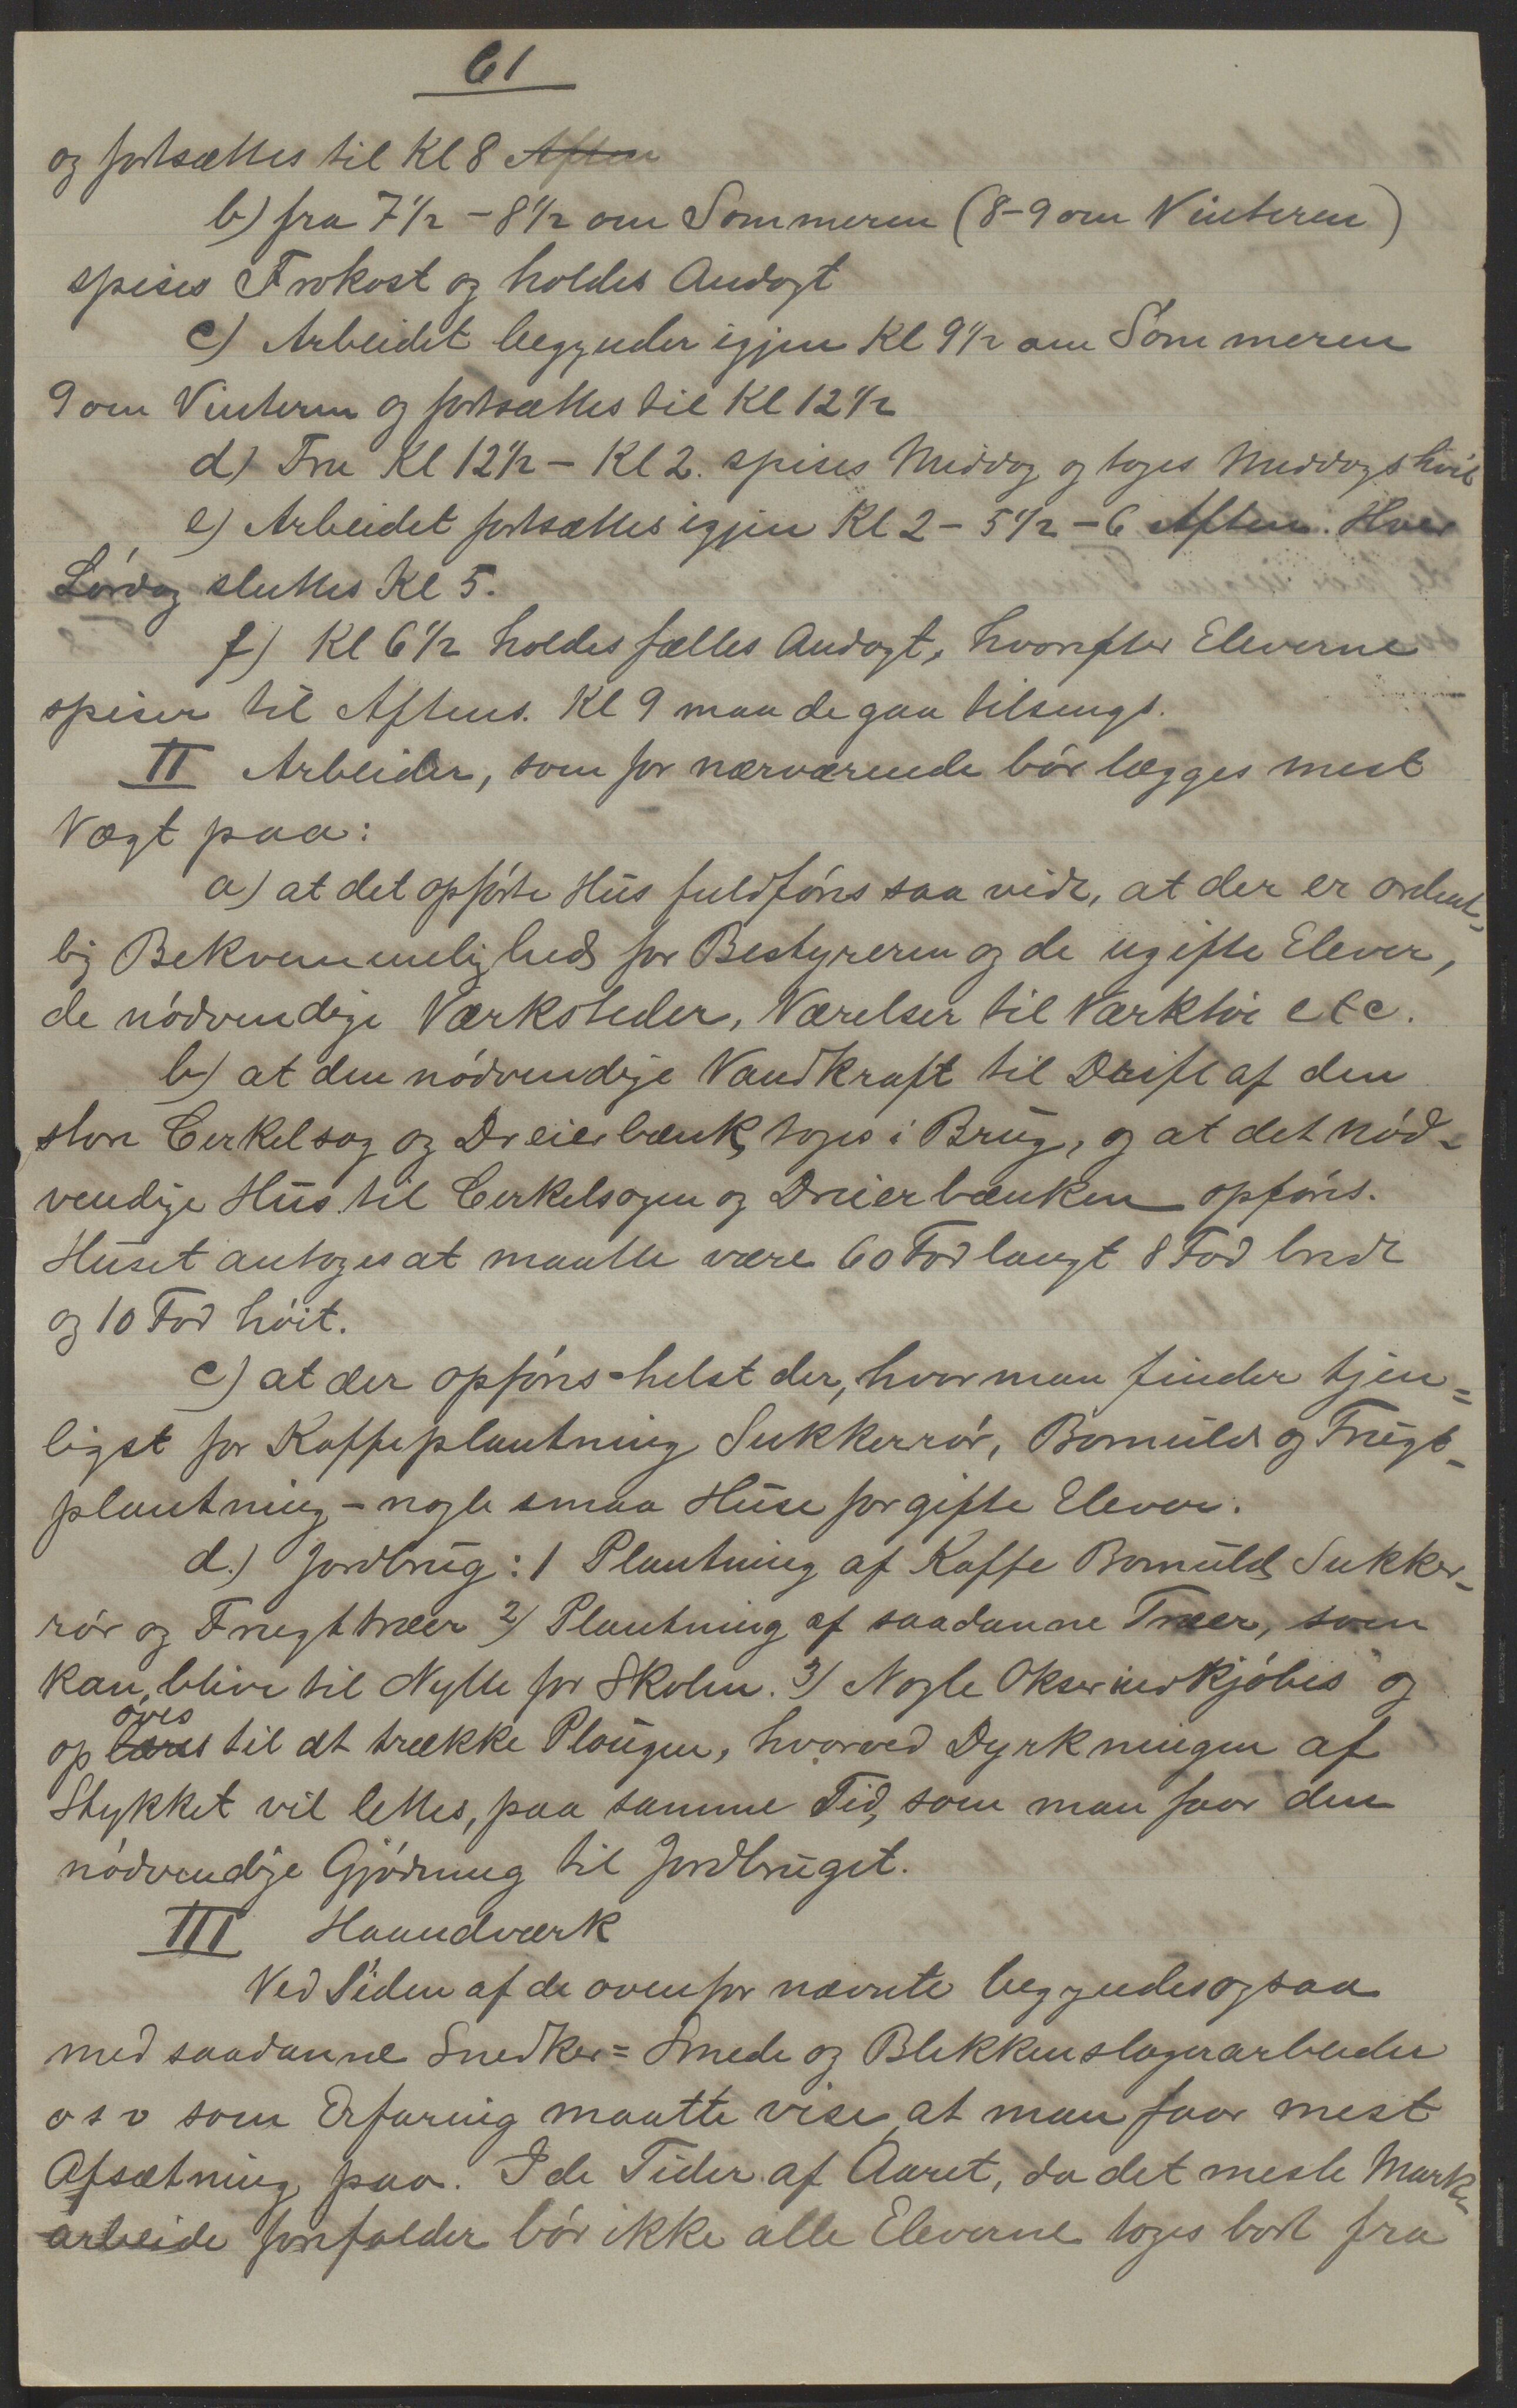 61
og fortsættes til Kl 8 Aften
b) fra 7 1/2 - 8 1/2 om Sommeren (8-9 om Vinteren)
spises Frokost og holdes Andagt
c) Arbeidet begynder igjen Kl 9 1/2 om Sommeren
9 om Vinteren og fortsættes til Kl 12 1/2
d) Fra Kl 12 1/2 - Kl 2. spises Middag og tages Middagshvil
e) Arbeidet fortsættes igjen Kl 2 - 5 1/2 - 6 Aften. Hver
Lørdag sluttes Kl 5.
f) Kl 6 1/2 holdes fælles Andagt, hvorefter Eleverne
spiser til Aftens. Kl 9 maa de gaa tilsengs.
II Arbeider, som for nærværende bør lægges mest
Vægt paa:
a) at det opførte Hus fuldføres saa vidt, at der er ordent-
lig Bekvemmelighed for Bestyreren og de ugifte Elever,
de nødvendige Værksteder, Værelser til Værktøi etc.
b) at den nødvendige Vandkraft til Drift af den
store Cirkelsag og Dreierbænk, tages i Brug, og at det nød-
vendige Hus til Cirkelsagen og Dreierbænken opføres.
Huset antages at maatte være 60 Fod langt 8 Fod bredt
og 10 Fod høit.
c) at der opføres - helst der, hvor man finder tjen=
ligst for Kaffeplantning Sukkerrør, Bomuld og Frugt-
plantning - nogle smaa Huse for gifte Elever.
d.) Jordbrug: 1 Plantning af Kaffe Bomuld, Sukker-
rør og Frugttræer 2) Plantning af saadanne Træer, som
kan, blive til Nytte for Skolen. 3) Nogle Okser indkjøbes og
øves
op læres til at trække Plougen, hvorved Dyrkningen af
Stykket vil lettes, paa samme Tid, som man faar den
nødvendige Gjødning til Jordbruget.
III Haandværk
Ved Siden af de ovenfor nævnte begyndes ogsaa
med saadanne Snedker= Smede og Blikkenslagerarbeider
o s v som Erfaring maatte vise, at man faar mest
Afsætning paa. I de Tider af Aaret, da det meste Mark-
arbeide forefalder bør ikke alle Eleverne tages bort fra